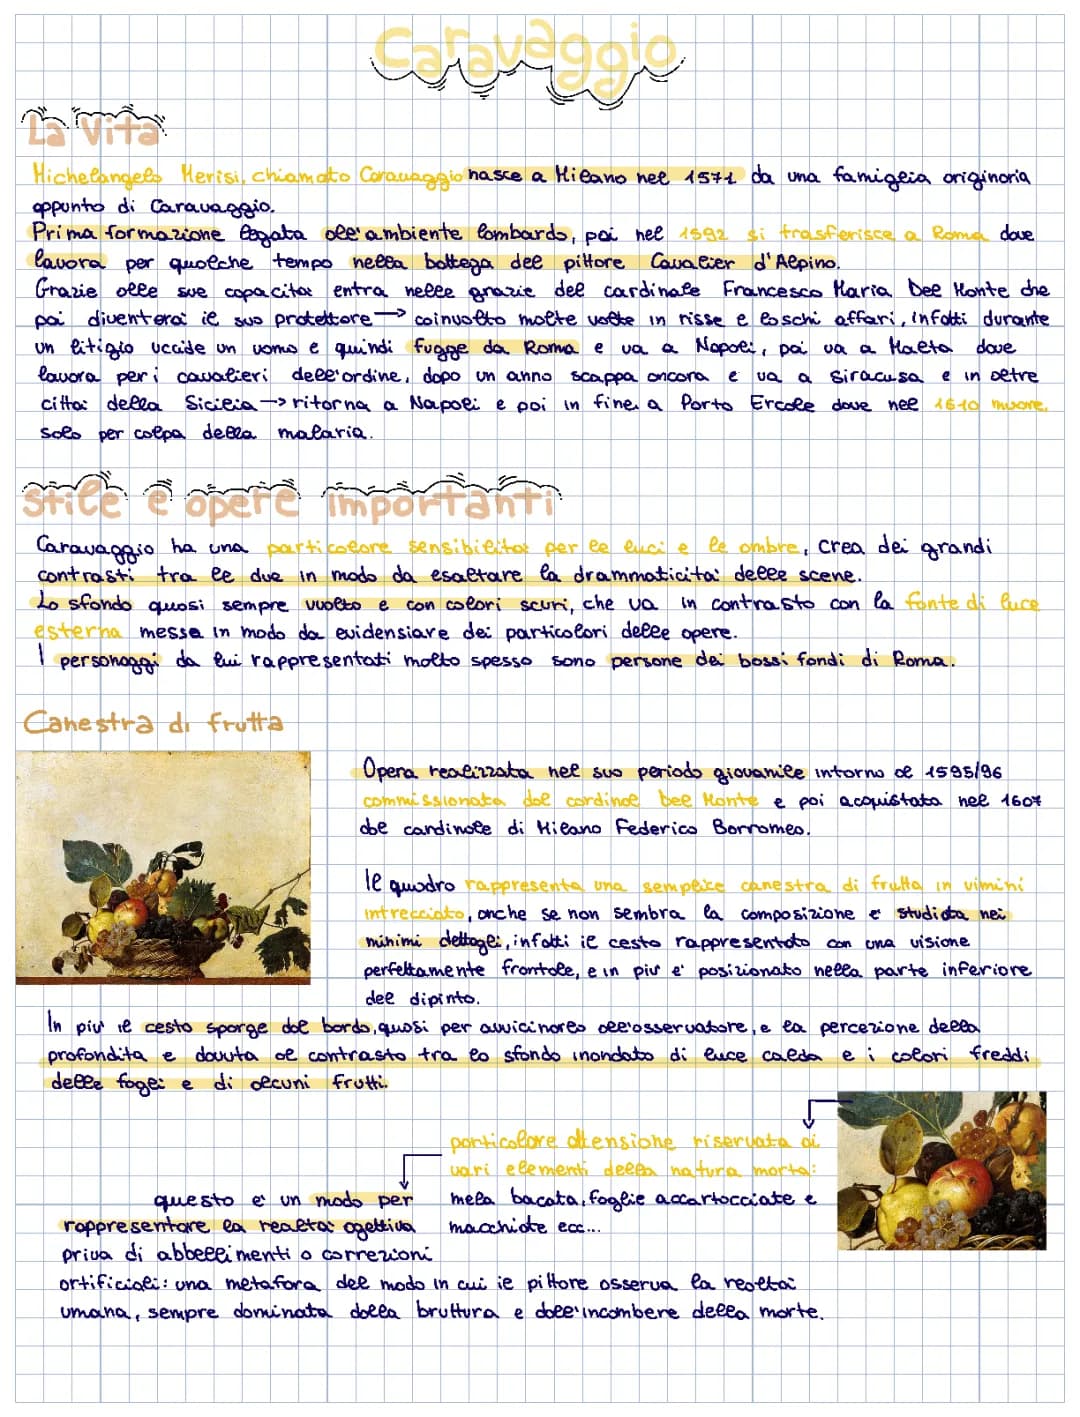 Caravaggio
La Vita
Michelangelo Merisi, chiamato Caravaggio nasce a Milano nel 1571 da una famiglia originaria
appunto di Caravaggio.
Prima formazione legata all'ambiente lombardo, poi nel 1592 si trasferisce a Roma dove
lavora per qualche tempo nella bottega del pittore Cavalier d'Alpino.
Grazie alle sue capacità entra nelle grazie del cardinale Francesco Maria Del Monte che
poi diventerà il suo protettore → coinvolto molte volte in risse e loschi affari, infatti durante
un litigio uccide un uomo e quindi fugge da Roma e va a Napoli, poi va a Malta dove
lavora per i cavalieri dell'ordine, dopo un anno scappa ancora e va a Siracusa e in altre
città della Sicilia → ritorna a Napoli e poi in fine a Porto Ercole dove nel 1610 muore,
solo per colpa della malaria.
Stile e opere importanti
Caravaggio ha una particolare sensibilità per le luci e le ombre, crea dei grandi
contrasti tra le due in modo da esaltare la drammaticità delle scene.
Lo sfondo quasi sempre vuoto e con colori scuri, che va in contrasto con la fonte di luce
esterna messa in modo da evidensiare dei particolari delle opere.
I personaggi da lui rappresentati molto spesso sono persone dei bassi fondi di Roma.
Canestra di frutta
Opera realizzata nel suo periodo giovanile intorno al 1595/96
commissionata dal cardinal Del Monte e poi acquistata nel 1607
dal cardinale di Milano Federico Borromeo.
Il quadro rappresenta una semplice canestra di frutta in vimini
intrecciato, anche se non sembra la composizione e' studiata nei
minimi dettagli, infatti il cesto rappresentato con una visione
perfettamente frontale, e in più e' posizionato nella parte inferiore
del dipinto.
In più il cesto sporge dal bordo, quasi per avvicinares all'osservatore, e la percezione della
profondita e dovuta al contrasto tra lo sfondo inondato di luce calda e i colori freddi
delle fogli e di alcuni frutti.
particolare attensione riservata ai
vari elementi della natura morta:
mela bacata, foglie accartocciate e
macchiate ecc...
questo e' un modo per
rappresentare la realtà ogettiva
priva di abbellimenti o correzioni
artificiali: una metafora del modo in cui il pittore osserva la realtà
umana, sempre dominata dalla bruttura e dall'incombere della morte.